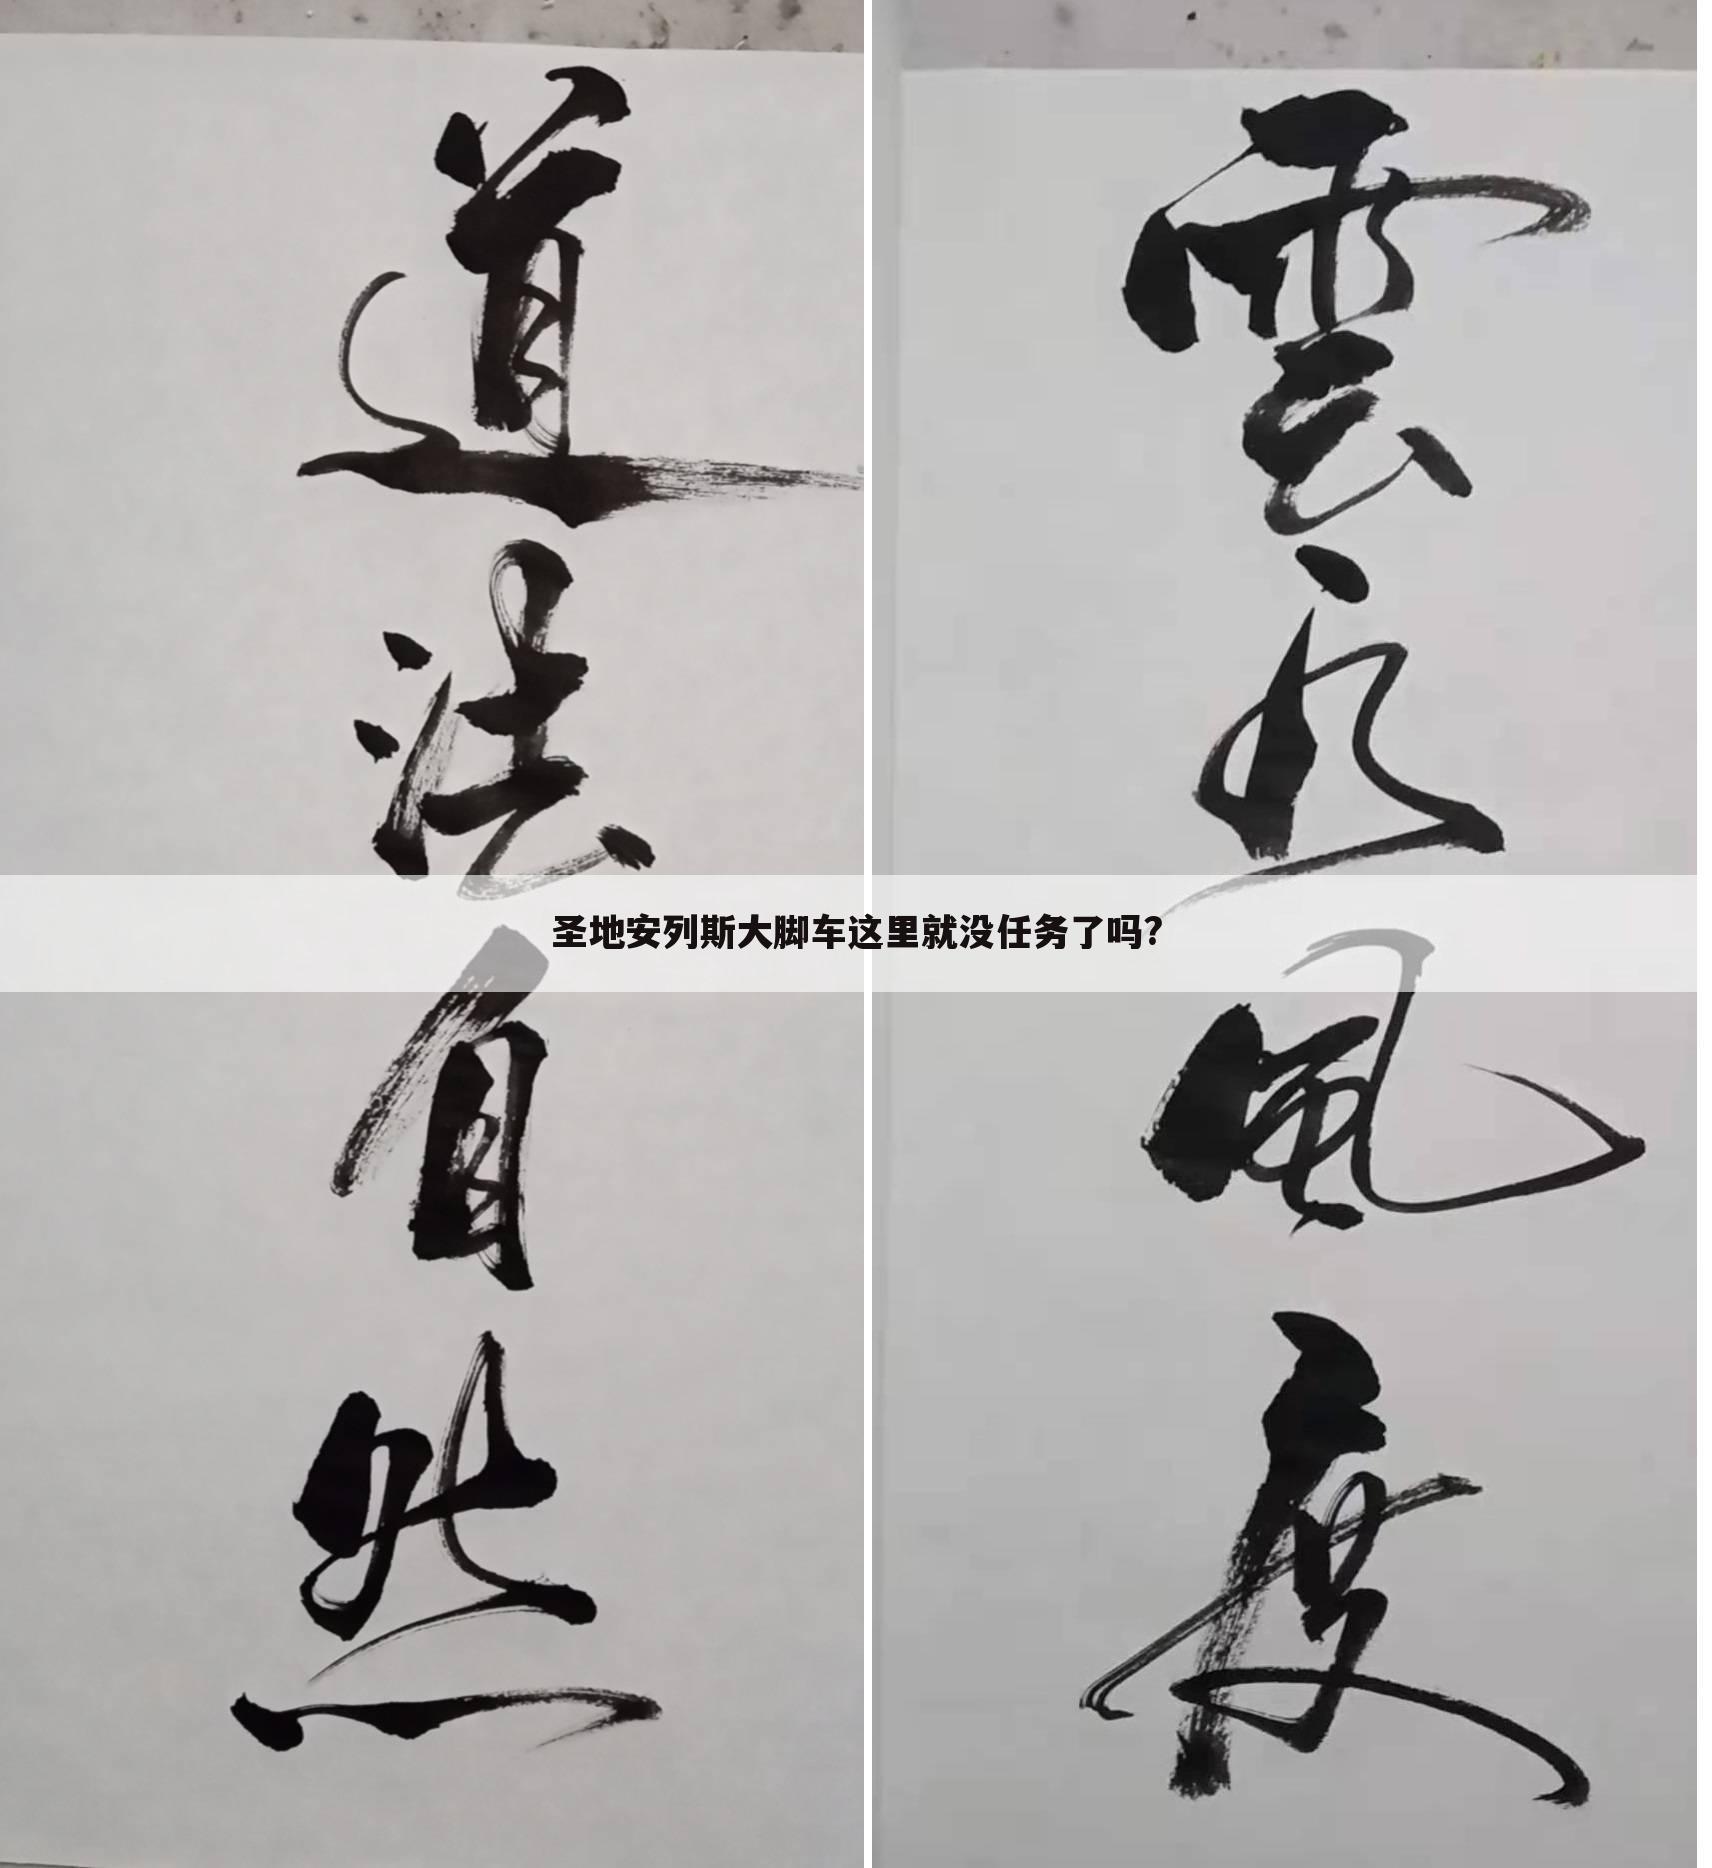 道法自然
雲水風度
圣地安列斯大脚车这里就没任务了吗?